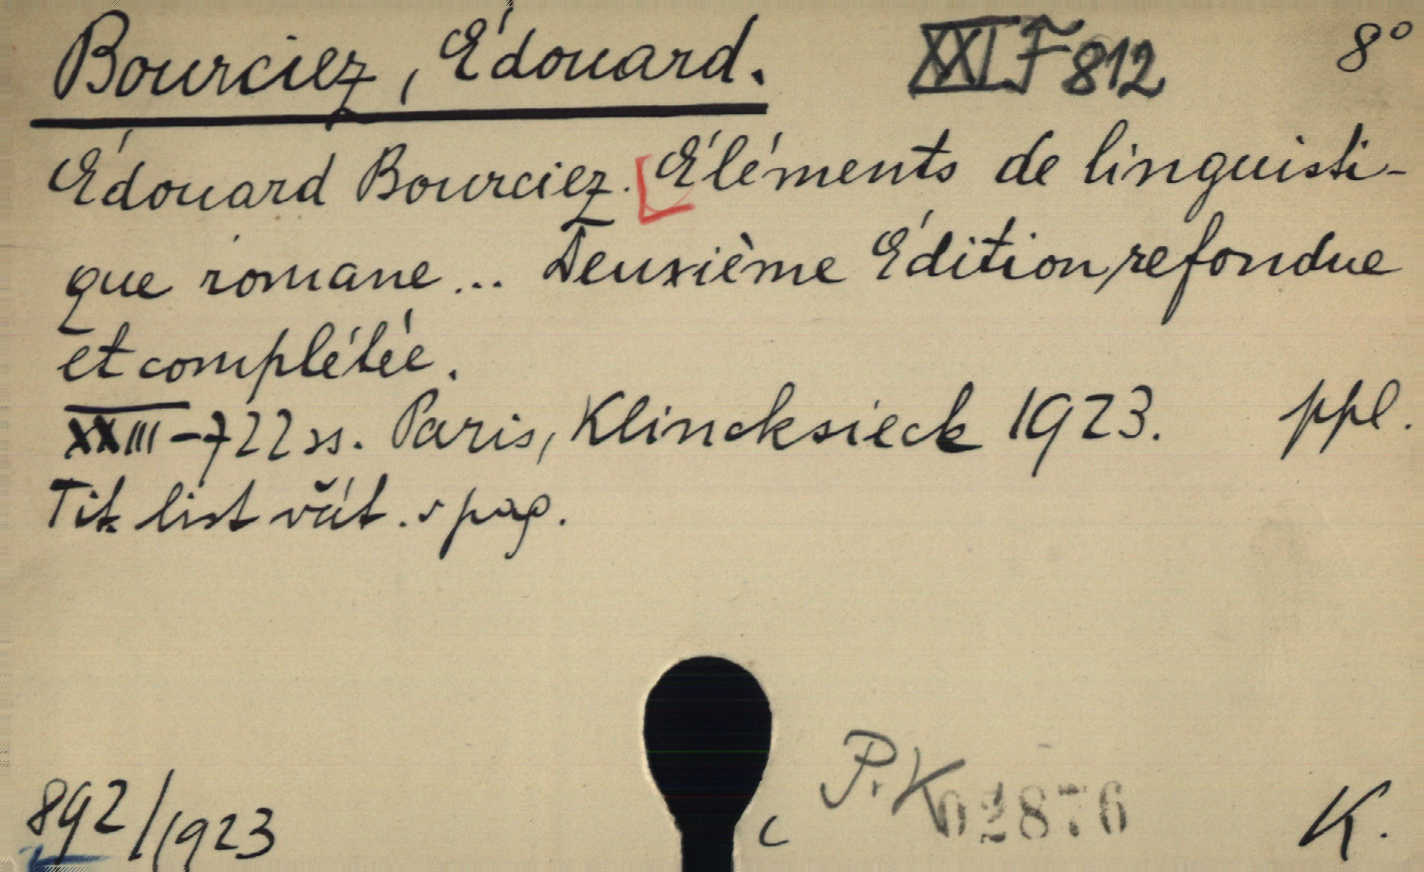 Bourciez, Édouard. XXI F 812 8°
Édouard Bourciez. Éléments de linguisti-
que romane... Deuxième Édition refondue
et complétée.
XXIII-722 ss. Paris, Klincksieck 1923. ppl.
Tit. list vžit. v pag.
P.K 02876
892/1923 c K.